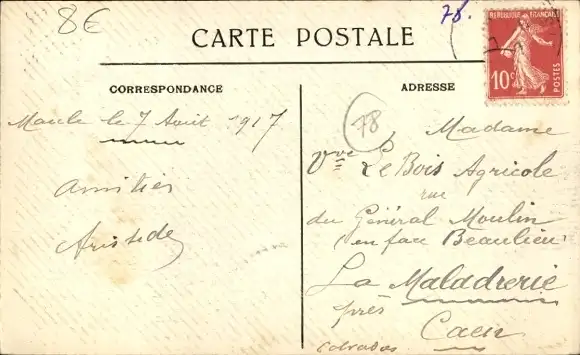 8€
78.
CARTE POSTALE
REPUBLIQUE FRANÇAISE
10c
POSTES
CORRESPONDANCE
ADRESSE
Maule le 7 Août 1917
Amitiés
Aristide
78
Madame
Vve Le Bois Agricole
rue
du Général Moulin
(en face Beaulieu)
La Maladrerie
près
Caen
Calvados